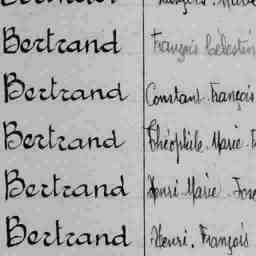 Bertrand François Célestin
Bertrand Constant. François
Bertrand Théophile. Marie.
Bertrand Henri. Marie.
Bertrand Henri. François